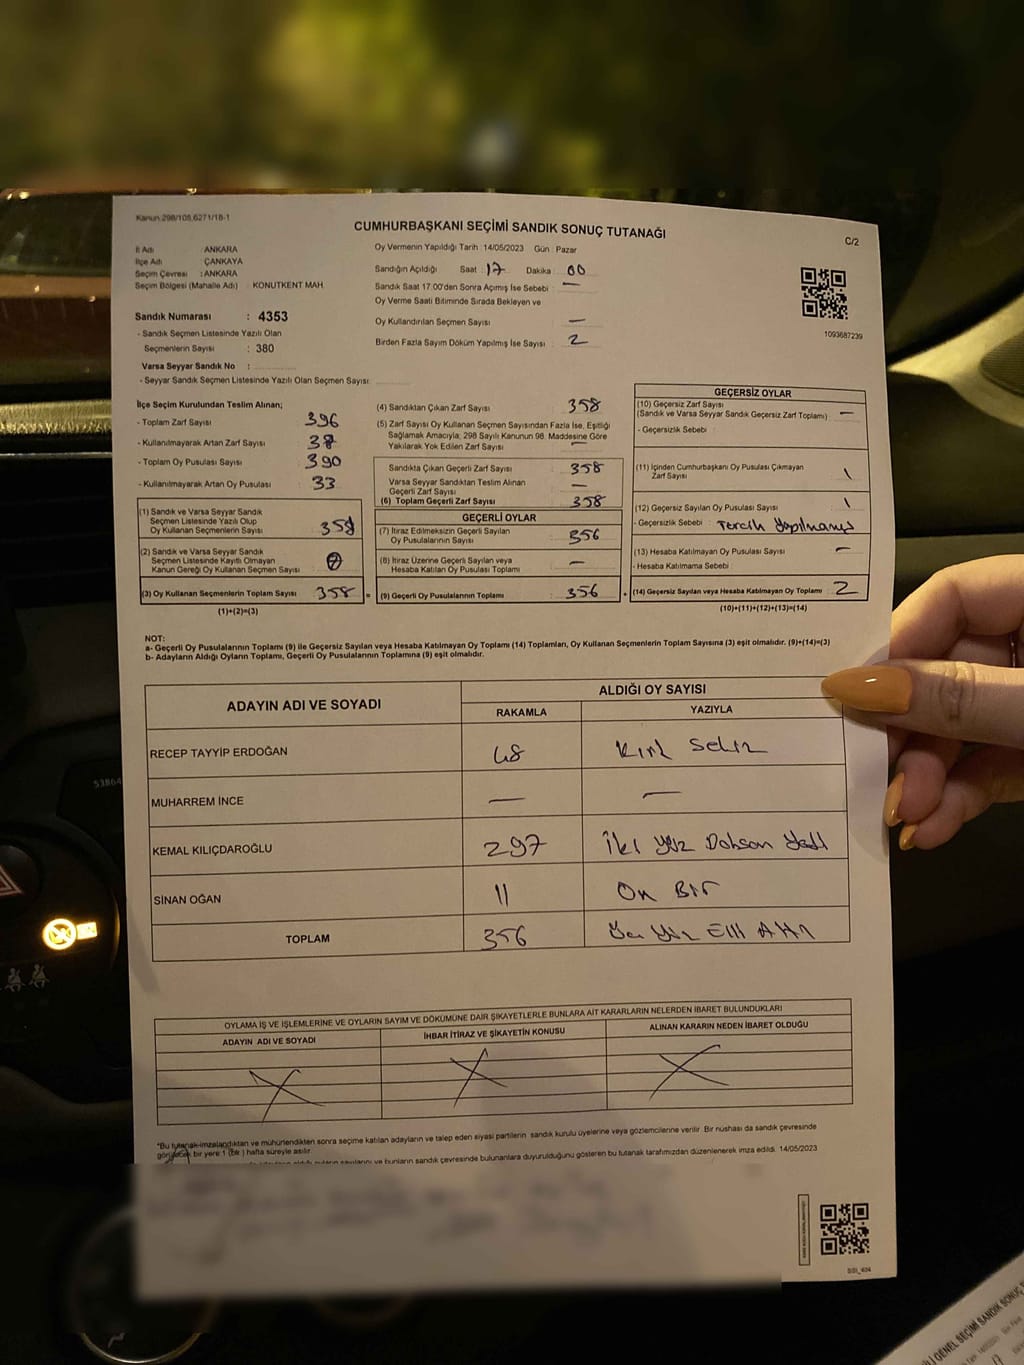 Kanun 298/108,6271/18-1
CUMHURBAŞKANI SEÇİMİ SANDIK SONUÇ TUTANAĞI
C/2
İl Adı : ANKARA
İlçe Adı : ÇANKAYA
Seçim Çevresi : ANKARA
Seçim Bölgesi (Mahalle Adı) : KONUTKENT MAH.
Sandık Numarası : 4353
- Sandık Seçmen Listesinde Yazılı Olan
Seçmenlerin Sayısı : 380
Varsa Seyyar Sandık No :
- Seyyar Sandık Seçmen Listesinde Yazılı Olan Seçmen Sayısı:
Oy Vermenin Yapıldığı Tarih : 14/05/2023 Gün : Pazar
Sandığın Açıldığı Saat : 17 Dakika : 00
Sandık Saat 17.00'den Sonra Açımış İse Sebebi : —
Oy Verme Saati Bitiminde Sırada Bekleyen ve
Oy Kullandırılan Seçmen Sayısı : —
Birden Fazla Sayım Döküm Yapılmış İse Sayısı : 2
1093687239
İlçe Seçim Kurulundan Teslim Alınan;
- Toplam Zarf Sayısı : 396
- Kullanılmayarak Artan Zarf Sayısı : 38
- Toplam Oy Pusulası Sayısı : 390
- Kullanılmayarak Artan Oy Pusulası : 33
(1) Sandık ve Varsa Seyyar Sandık
Seçmen Listesinde Yazılı Olup
Oy Kullanan Seçmenlerin Sayısı : 358
(2) Sandık ve Varsa Seyyar Sandık
Seçmen Listesinde Kayıtlı Olmayan
Kanun Gereği Oy Kullanan Seçmen Sayısı :
(3) Oy Kullanan Seçmenlerin Toplam Sayısı : 358 =
(1)+(2)=(3)
(4) Sandıktan Çıkan Zarf Sayısı : 358
(5) Zarf Sayısı Oy Kullanan Seçmen Sayısından Fazla İse, Eşitliği
Sağlamak Amacıyla; 298 Sayılı Kanunun 98. Maddesine Göre
Yakılarak Yok Edilen Zarf Sayısı : —
Sandıkta Çıkan Geçerli Zarf Sayısı : 358
Varsa Seyyar Sandıktan Teslim Alınan
Geçerli Zarf Sayısı : —
(6) Toplam Geçerli Zarf Sayısı : 358
GEÇERLİ OYLAR
(7) İtiraz Edilmeksizin Geçerli Sayılan
Oy Pusulalarının Sayısı : 356
(8) İtiraz Üzerine Geçerli Sayılan veya
Hesaba Katılan Oy Pusulası Toplamı : —
(9) Geçerli Oy Pusulalarının Toplamı : 356 +
GEÇERSİZ OYLAR
(10) Geçersiz Zarf Sayısı
(Sandık ve Varsa Seyyar Sandık Geçersiz Zarf Toplamı) : —
- Geçersizlik Sebebi :
(11) İçinden Cumhurbaşkanı Oy Pusulası Çıkmayan
Zarf Sayısı : 1
(12) Geçersiz Sayılan Oy Pusulası Sayısı : 1
- Geçersizlik Sebebi : Tercih Yapılmamış
(13) Hesaba Katılmayan Oy Pusulası Sayısı : —
- Hesaba Katılmama Sebebi :
(14) Geçersiz Sayılan veya Hesaba Katılmayan Oy Toplamı : 2
(10)+(11)+(12)+(13)=(14)
NOT:
a- Geçerli Oy Pusulalarının Toplamı (9) ile Geçersiz Sayılan veya Hesaba Katılmayan Oy Toplamı (14) Toplamları, Oy Kullanan Seçmenlerin Toplam Sayısına (3) eşit olmalıdır. (9)+(14)=(3)
b- Adayların Aldığı Oyların Toplamı, Geçerli Oy Pusulalarının Toplamına (9) eşit olmalıdır.
ADAYIN ADI VE SOYADI ALDIĞI OY SAYISI
RAKAMLA YAZIYLA
RECEP TAYYİP ERDOĞAN 48 Kırk Sekiz
MUHARREM İNCE — —
KEMAL KILIÇDAROĞLU 297 İki Yüz Doksan Yedi
SİNAN OĞAN 11 On Bir
TOPLAM 356 Üç Yüz Elli Altı
OYLAMA İŞ VE İŞLEMLERİNE VE OYLARIN SAYIM VE DÖKÜMÜNE DAİR ŞİKAYETLERLE BUNLARA AİT KARARLARIN NELERDEN İBARET BULUNDUKLARI
ADAYIN ADI VE SOYADI İHBAR İTİRAZ VE ŞİKAYETİN KONUSU ALINAN KARARIN NEDEN İBARET OLDUĞU
*Bu tutanak imzalandıktan ve mühürlendikten sonra seçime katılan adayların ve talep eden siyasi partilerin sandık kurulu üyelerine veya gözlemcilerine verilir. Bir nüshası da sandık çevresinde
görülecek bir yere 1 (bir) hafta süreyle asılır.
bunların sandık çevresinde bulunanlara duyurulduğunu gösteren bu tutanak tarafımızdan düzenlenerek imza edildi. 14/05/2023
53864
GENEL SEÇİMİ SANDIK SONUÇ